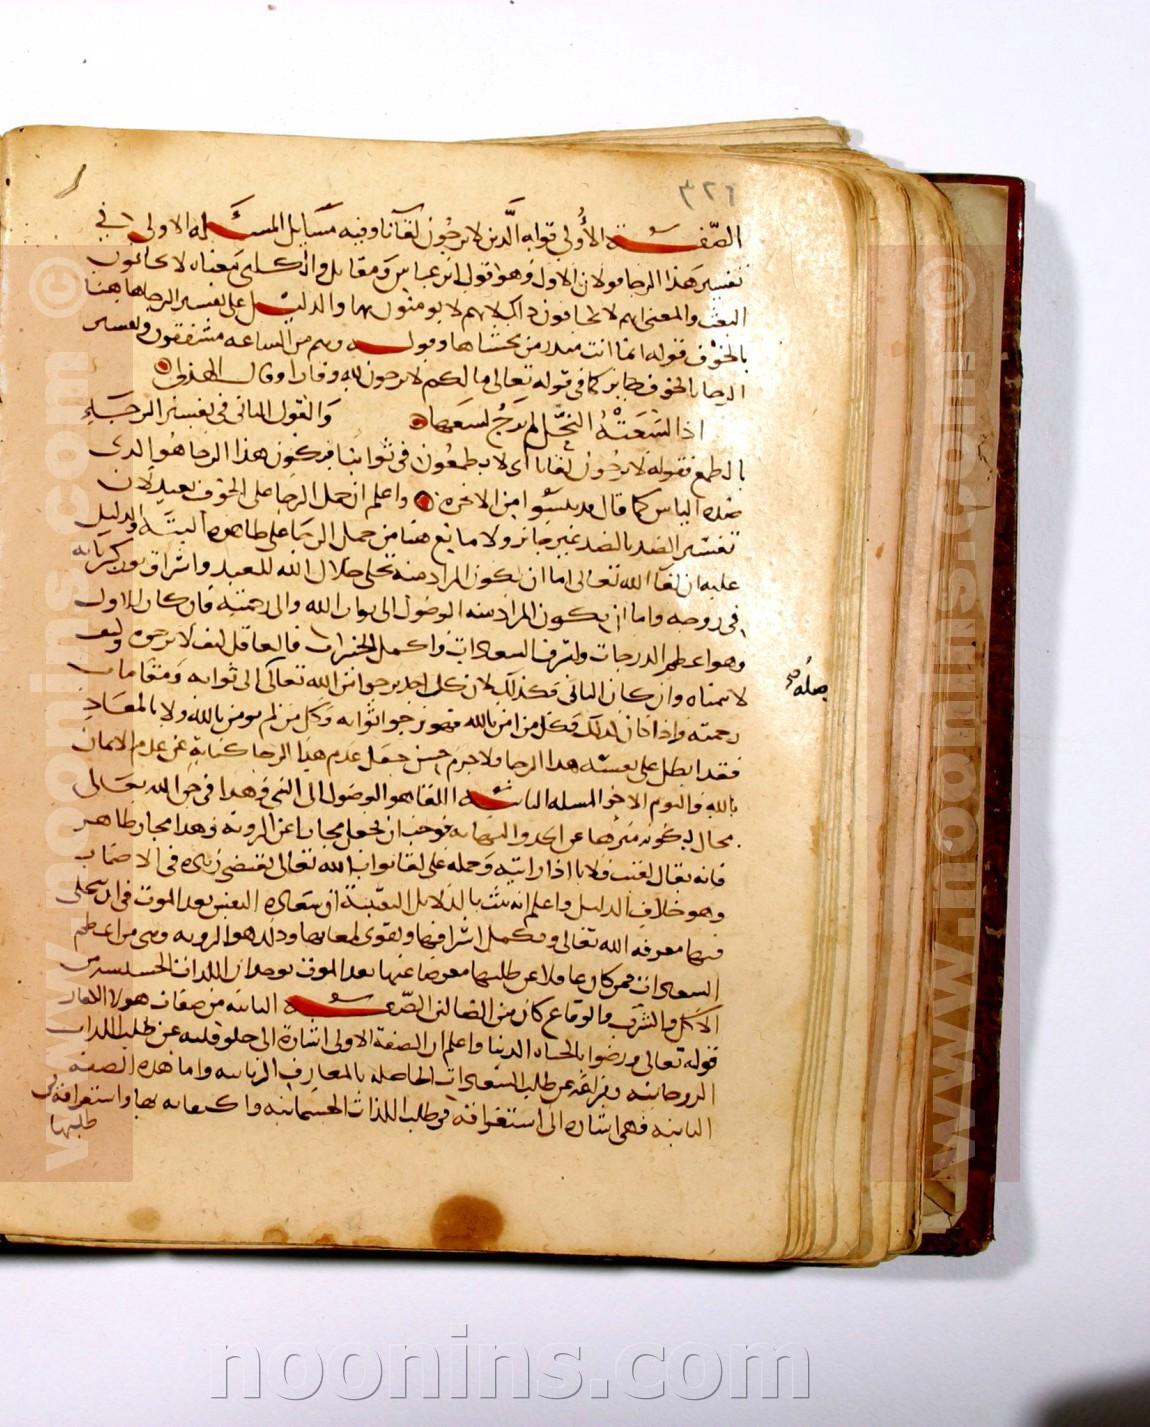 ٣٢٤
الصّفة الأُولى قوله الَّذين لا يرجُون لقآنا وفيه مسَايل المسئَله الاولى في
تفسير هَذا الرجا قولان الاول وهو قول ابن عباس وَمقاتل والكلبي مَعناه لا يخافون
البعث والمعنى انهم لا يخافون ذلك لانهم لا يومنون بها والدليل على تفسير الرجا هاهنا
بالخوف قوله انما انت منذر من يخشاها وقوله وهم من الساعه مشفقون وتفسير
الرجا بالخوف جايز كما في قوله تعالى ما لكم لا ترجون لله وقارا وقال الهذلي
اذا لسَعَتْهُ النَّحْل لم يَرجُ لسعها والقول الثاني في تفسير الرجَاء
بالطمع فقوله لا يرجُون لقانا اي لا يطمعُون في ثوابنا فيكون هذا الرجا هُو الذي
ضده الياس كما قال قد يئسُوا من الاخرة واعلم ان حمل الرجَا على الخوف بعيد لان
تفسير الضد بالضد غير جائز ولا مانع هنا من حمل الرجَا على ظاهره البتَه والدليل
عليه ان لقآ الله تعَالى اما ان يكون المراد منه تجلى جلال الله للعبد واشراق نور كبريائه
في روحه واما ان يكون المرَاد منه الوصُول الى ثواب الله والى رحمته فان كان الاول
وهو اعظم الدرجات واشرف السعادات واكمل الخيرات فالعاقل كيف لا يرجوه وكيف
لا يتمناه وان كان الثاني فكذلك لان كل احد يرجوا من الله تعالى الى ثوابه وَمقامات
رحمته واذا كان كذلك فكل من امن بالله فهو يرجوا ثوابه وَكل من لم يومن بالله ولا بالمعَاد
فقد ابطل على نفسه هذا الرجا ولا جرم حسن جعَل عدم هذا الرجا كناية عن عدم الايمان
بالله واليوم الاخر المسله الثانيه اللقا هو الوصُول الى الشي وَهذا في حق الله تعَالى
محال لكونه منزها عن الحد والنهايه فوجب ان يجعل مجازا عن الروية وَهذا مجاز ظاهر
فانه يقال لقيت فلانا اذا رايته وَحمله على لقا ثواب الله تعَالى يقتضي زيادة في الاضمار
وهو خلاف الدليل واعلم انه ثبت بالدَلايل اليقينة ان سعادة النفس بعد الموت في ان تتجلى
فيها معرفة الله تعَالى ويكمل اشراقها ويقوى لمعانها وذلك هو الروية وهي من اعظم
السعادات فمن كان غافلا عن طلبها معرضا عنها بعد الموت بوجدان اللذات الحسية من
الاكل والشرب والوقاع كان من الضالين الصّفه الثانيه من صفات هولا الكفار
قوله تعالى ورضوا بالحياه الدنيا واعلم ان الصفة الاولى اشارة الى خلو قلبه عن طلب اللذات
الروحانيه وفراغه عن طلب السعادات الحاصله بالمعارف الربانيه واما هذه الصفه
الثانيه فهي اشاره الى استغراقه في طلب اللذات الجسمانيه واكتفائه بها واستغراقه في
طلبها